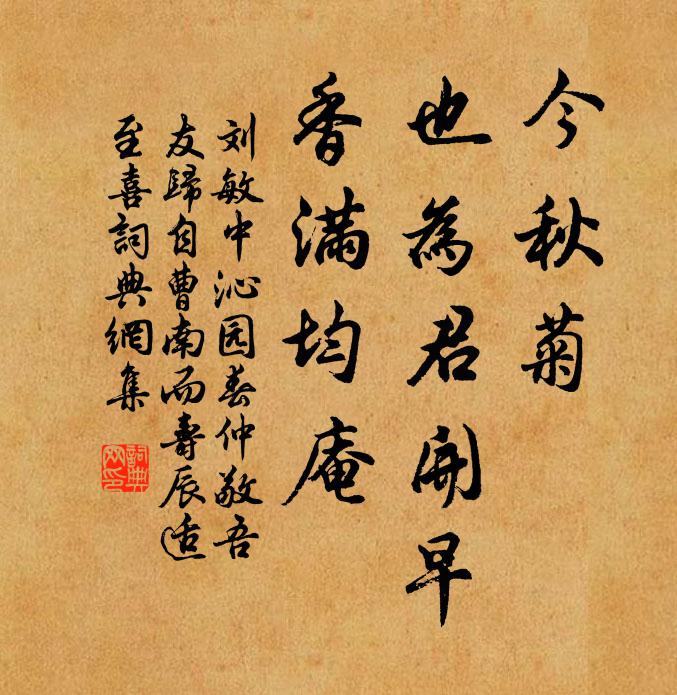 今秋菊
也為君開早
香滿均庵
刘敏中沁园春仲敬吾
友歸自曹南而壽辰适
至喜詞典網集
詞典
网印